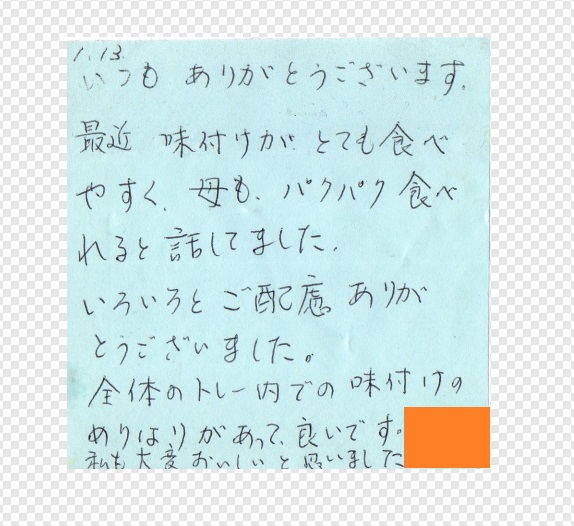 1.13
いつも ありがとうございます。
最近 味付けが とても食べ
やすく、母も、パクパク 食べ
れると 話してました。
いろいろと ご配慮 ありが
とうございました。
全体のトレー内での 味付けの
めりはりがあって、良いです。
私も大変おいしいと思いました